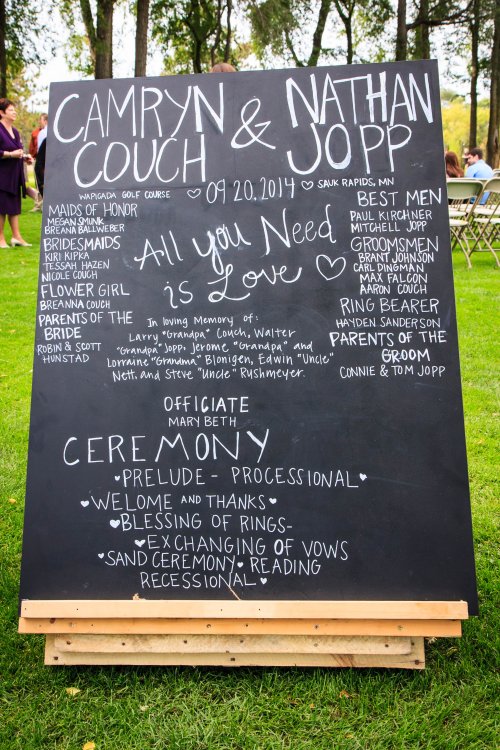 CAMRYN & NATHAN
COUCH JOPP
WAPIGADA GOLF COURSE ♡ 09.20.2014 ♡ SAUK RAPIDS, MN
MAIDS OF HONOR
MEGAN SMUNK
BREANA BALLWEBER
BRIDESMAIDS
KIRI KIPKA
TESSAH HAZEN
NICOLE COUCH
FLOWER GIRL
BREANNA COUCH
PARENTS OF THE
BRIDE
ROBIN & SCOTT
HUNSTAD
All you Need
is Love ♡
In loving Memory of:
Larry "Grandpa" Couch, Walter
"Grandpa" Jopp, Jerome "Grandpa" and
Lorraine "Grandma" Blonigen, Edwin "Uncle"
Nett, and Steve "Uncle" Rushmeyer.
BEST MEN
PAUL KIRCHNER
MITCHELL JOPP
GROOMSMEN
BRANT JOHNSON
CARL DINGMAN
MAX FALCON
AARON COUCH
RING BEARER
HAYDEN SANDERSON
PARENTS OF THE
GROOM
CONNIE & TOM JOPP
OFFICIATE
MARY BETH
CEREMONY
♥PRELUDE - PROCESSIONAL♥
♥WELOME AND THANKS♥
♥BLESSING OF RINGS-
♥EXCHANGING OF VOWS
♥SAND CEREMONY♥ READING
RECESSIONAL♥